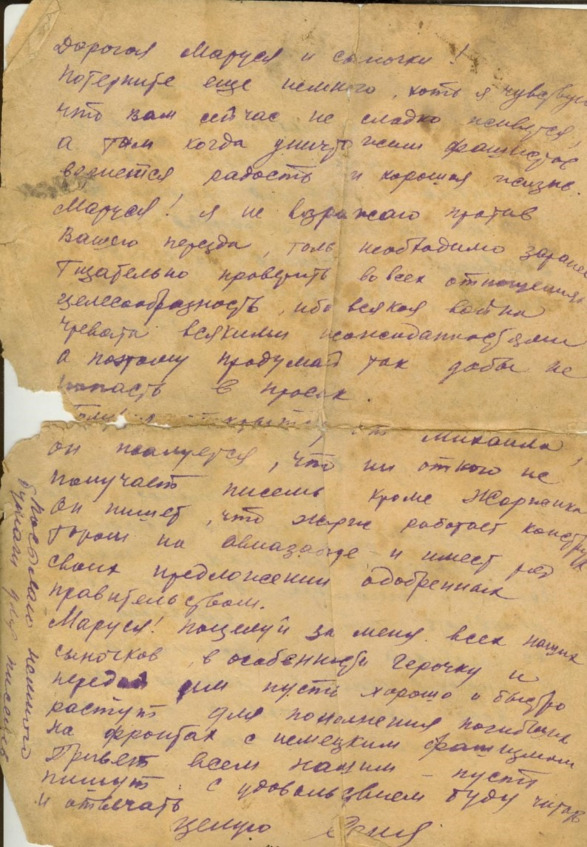 Дорогая Маруся и сыночки!
Потерпите еще немного, хоть я чувствую
что вам сейчас не сладко живется!
а там когда уничтожим фашистов
вернется радость и хорошая жизнь.
Маруся! я не возражаю против
Вашего переезда, толь необходимо заранее
тщательно проверить во всех отношениях
целесообразность, ибо всякая война
чревата всякими неожиданностями
а поэтому продумай так дабы не
попасть в просак.
Михаила!
он жалуется, что ни от кого не
получает писем кроме Жоржика
Он пишет, что Жорж работает конструк
тором на авиазаводе и имеет ряд
своих предложений одобренных
правительством.
Маруся! поцелуй за меня всех наших
сыночков, в особенности Герочку и
передай им пусть хорошо и быстро
растут для пополнения погибших
на фронтах с немецким фашизмом
Привет всем нашим – пусть
пишут, с удовольствием буду читать
и отвечать
целую
посылаю немного
бумаги для писем